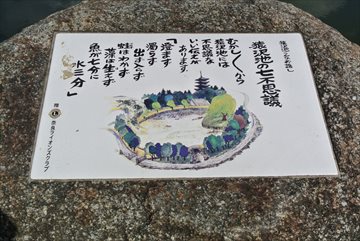 猿沢池のお話し
猿沢池の七不思議
むかし〱から
猿沢池には
不思議な
いいつたえが
あります。
「澄まず
濁らず
出ず入らず
蛙はわかず
藻は生えず
魚が七分に
水三分」
贈 奈良ライオンズクラブ